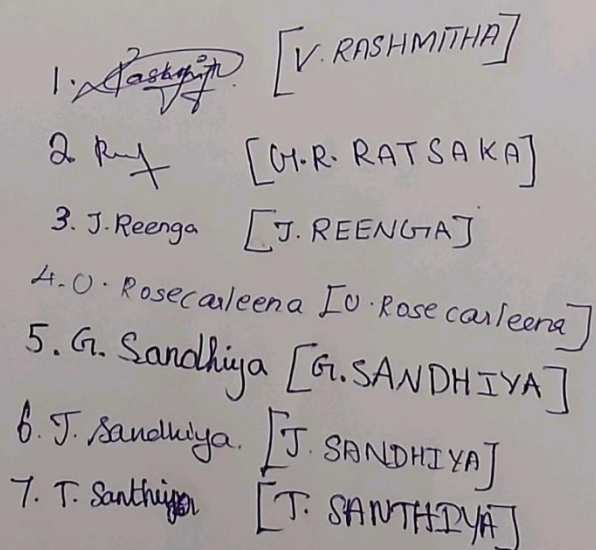 1. Rashmith [V. RASHMITHA]
2. [G.R. RATSAKA]
3. J. Reenga [J. REENGA]
4. O. Rosecarleena [O. Rose carleena]
5. G. Sandhiya [G. SANDHIYA]
6. J. Sandhiya. [J. SANDHIYA]
7. T. Santhiya [T. SANTHIYA]